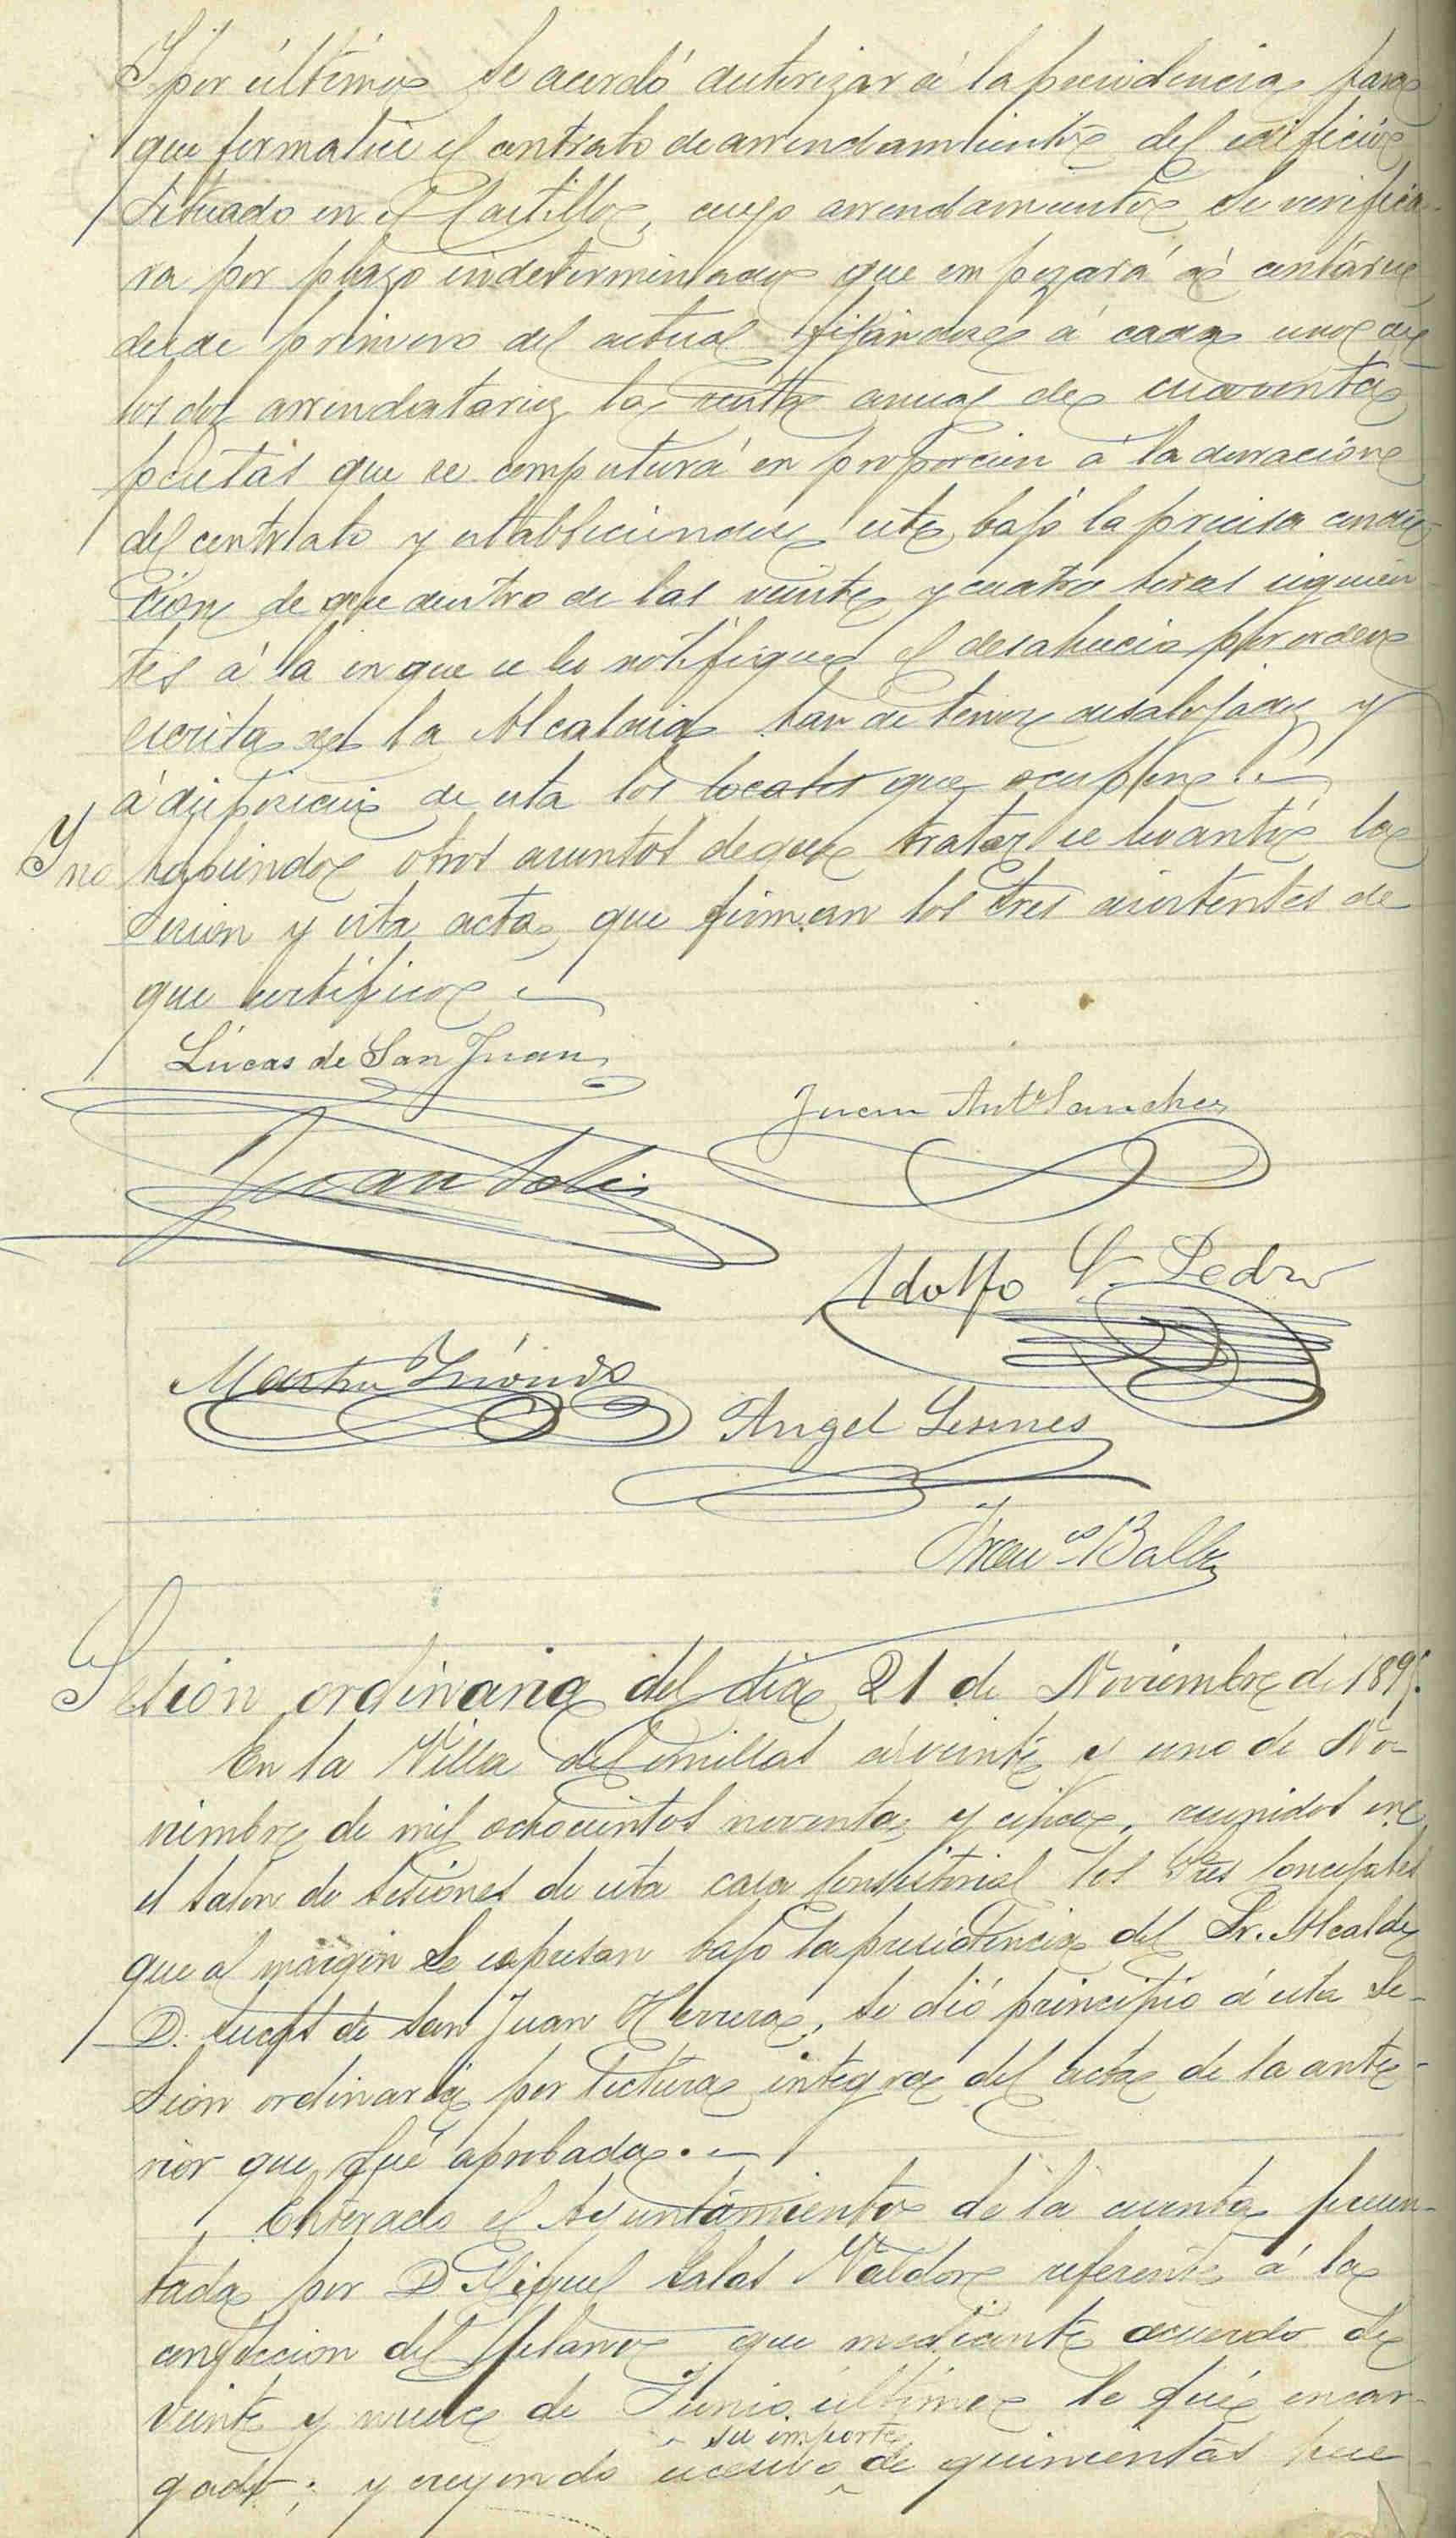 Y por último se acordó autorizar á la presidencia para
que formalice el contrato de arrendamiento del edificio
situado en el Castillo, cuyo arrendamiento se verifica-
ra por plazo indeterminado que empezará á contarse
desde primero del actual fijandose á cada uno de
los dos arrendatarios la renta anual de cuarenta
pesetas que se computará en proporcion á la duracion
del contrato y estableciendose este bajo la precisa condi-
cion de que dentro de las veinte y cuatro horas siguien-
tes á la en que se les notifique el desahucio por orden
escrita de la Alcaldia han de tener desalojados y
á disposicion de esta los locales que ocupen.
Y no habiendo otros asuntos de que tratar se levantó la
sesion y esta acta, que firman los Sres asistentes de
que certifico
Lúcas de San Juan
Juan Ant.º Sanchez
Juan Solis
Adolfo G. Pedro
Martin
Angel Lesmes
Franco Balb
Sesión ordinaria del dia 21 de Noviembre de 1895.
En la Villa de Comillas á veinte y uno de No-
viembre de mil ochocientos noventa y cinco, reunidos en
el salon de sesiones de esta casa Consistorial los Sres Concejales
que al margen se expresan bajo la presidencia del Sr. Alcalde
D. Lucas de San Juan Herrera, se dió principio á esta se-
sion ordinaria por lectura integra del acta de la ante-
rior que fué aprobada.
Enterado el Ayuntamiento de la cuenta presen-
tada por D. Miguel Salas Valdor referente á la
confeccion del plano que mediante acuerdo de
veinte y nueve de Junio último le fué encar-
su importe
gado; y creyendo excesivo de quinientas pese